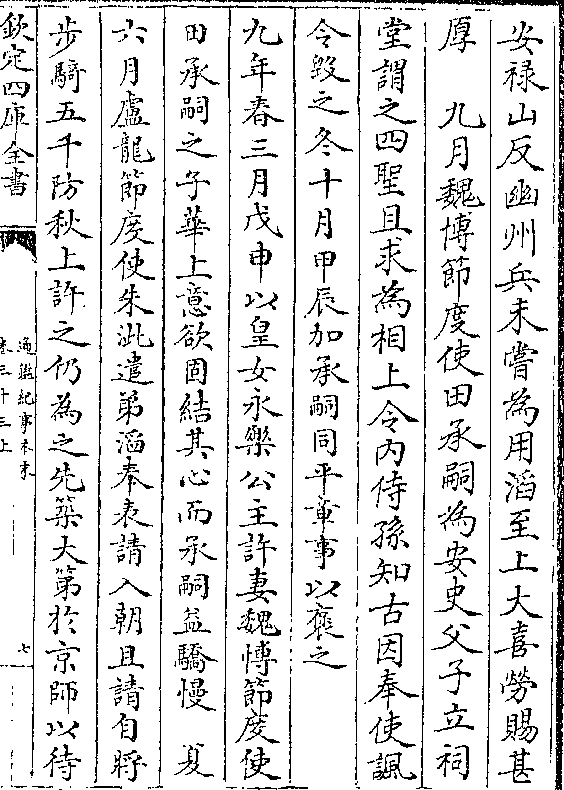 安祿山反幽州兵未嘗為用滔至上大喜勞賜甚
厚　九月魏博節度使田承嗣為安史父子立祠
堂謂之四聖且求為相上令内侍孫知古因奉使諷
令毁之冬十月甲辰加承嗣同平章事以褒之
九年春三月戊申以皇女永樂公主許妻魏博節度使
田承嗣之子華上意欲固結其心而承嗣益驕慢　夏
六月盧龍節度使朱泚遣弟滔奉表請入朝且請自將
步騎五千防秋上許之仍為之先築大第於京師以待
欽定四庫全書
通鑑紀事本末
卷三十三上
七